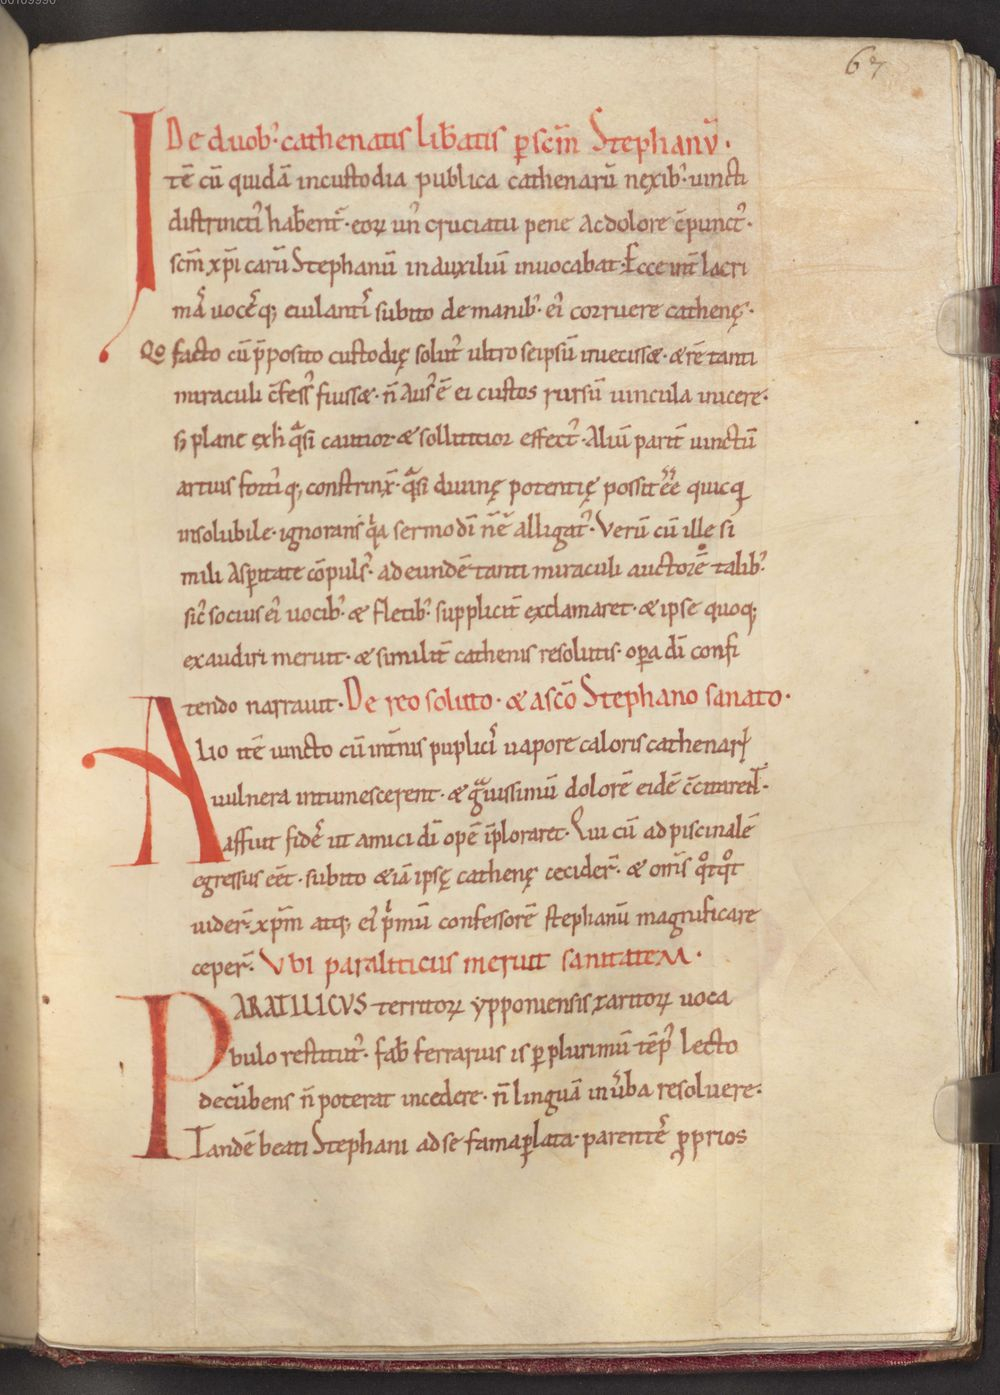 00109990
67
De duob᾽ cathenatis lib̄atis p̱ scm̄ Stephanū·
Itē cū quidā in custodia publica cathenarū nexib᾽ uincti
districti᾽ haberent᾽· eoꝝ un᾽ cruciatu pene ac dolore cp̄unct᾽·
scm̄ xp̄i carū Stephanū in auxiliū inuocabat· Ecce int̄ lacri
mas uocesq; eiulantis subito de manib᾽ ei᾽ corruere cathenę·
Qo facto cū p̄posito custodię solut᾽ ultro seipsū iniecisset· & rē tanti
miraculi cf̄ess᾽ fuisset· n̄ aus᾽ ē ei custos rursū uincula inicere·
s; plane exh̄ qͣsi cautior & sollititior effect᾽· Aliū parit̄ uinctū
artius forti᾽q; constrinx̄· qͣsi diuinę potentię possit ee᾽ quicq̄
insolubile· ignorans qͥa sermo dī n̄ ē alligat᾽· Verū cū ille si
mili asp̱itate cōpuls᾽· ad eundē tanti miraculi auctorē talib᾽
sic᾽ socius ei᾽ uocib᾽ & fletib᾽ supplicit̄ exclamaret· & ipse quoq;
exaudiri meruit· & similit̄ cathenis resolutis· op̱a dī confi
tendo narrauit· De reo soluto· & a scō Stephano sanato·
Alio itē uincto cū int̄nis puplici᾽ uapore caloris cathenaꝝ
uulnera intumescerent· & gͣuissimū dolorē eidē cc̄itarent·
affuit fides ut amici dī opē īploraret· Qui cū ad piscinalē
egressus eēt· subito & iā ipsę cathenę cecider̄· & om̄s qͦtqͦt
uider̄ xp̄m atq; ei᾽ pͥmū confessorē stephanū magnificare
ceper̄· Vbi paraliticus meruit sanitateM·
PARATILICVS territoꝝ ypponiensis xaritoꝝ uoca
bulo restitut᾽· fab̄ ferrarius is p̱ plurimū tēp᾽ lecto
decūbens n̄ poterat incedere· n̄ linguā in ūba resoluere·
Tandē beati Stephani ad se fama p̱lata· parentes p̱prios